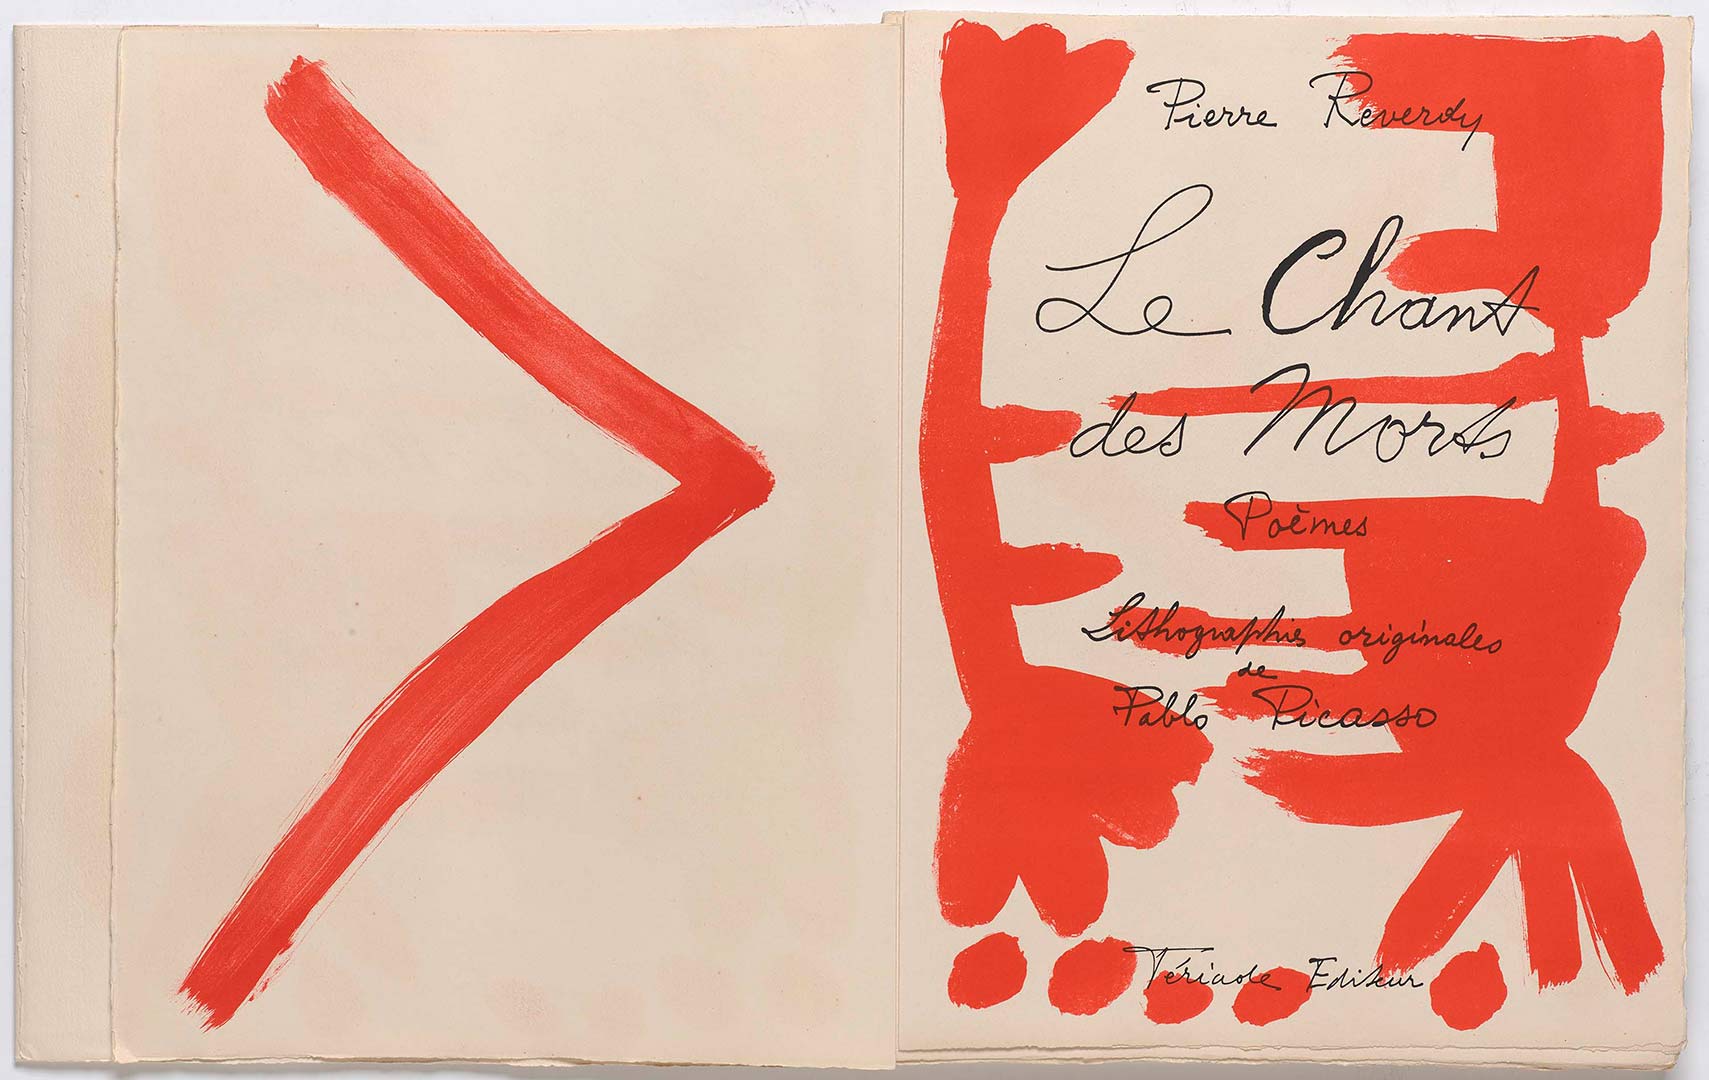 Pierre Reverdy
Le Chant
des Morts
Poèmes
Lithographies originales
de
Pablo Picasso
Tériade Editeur